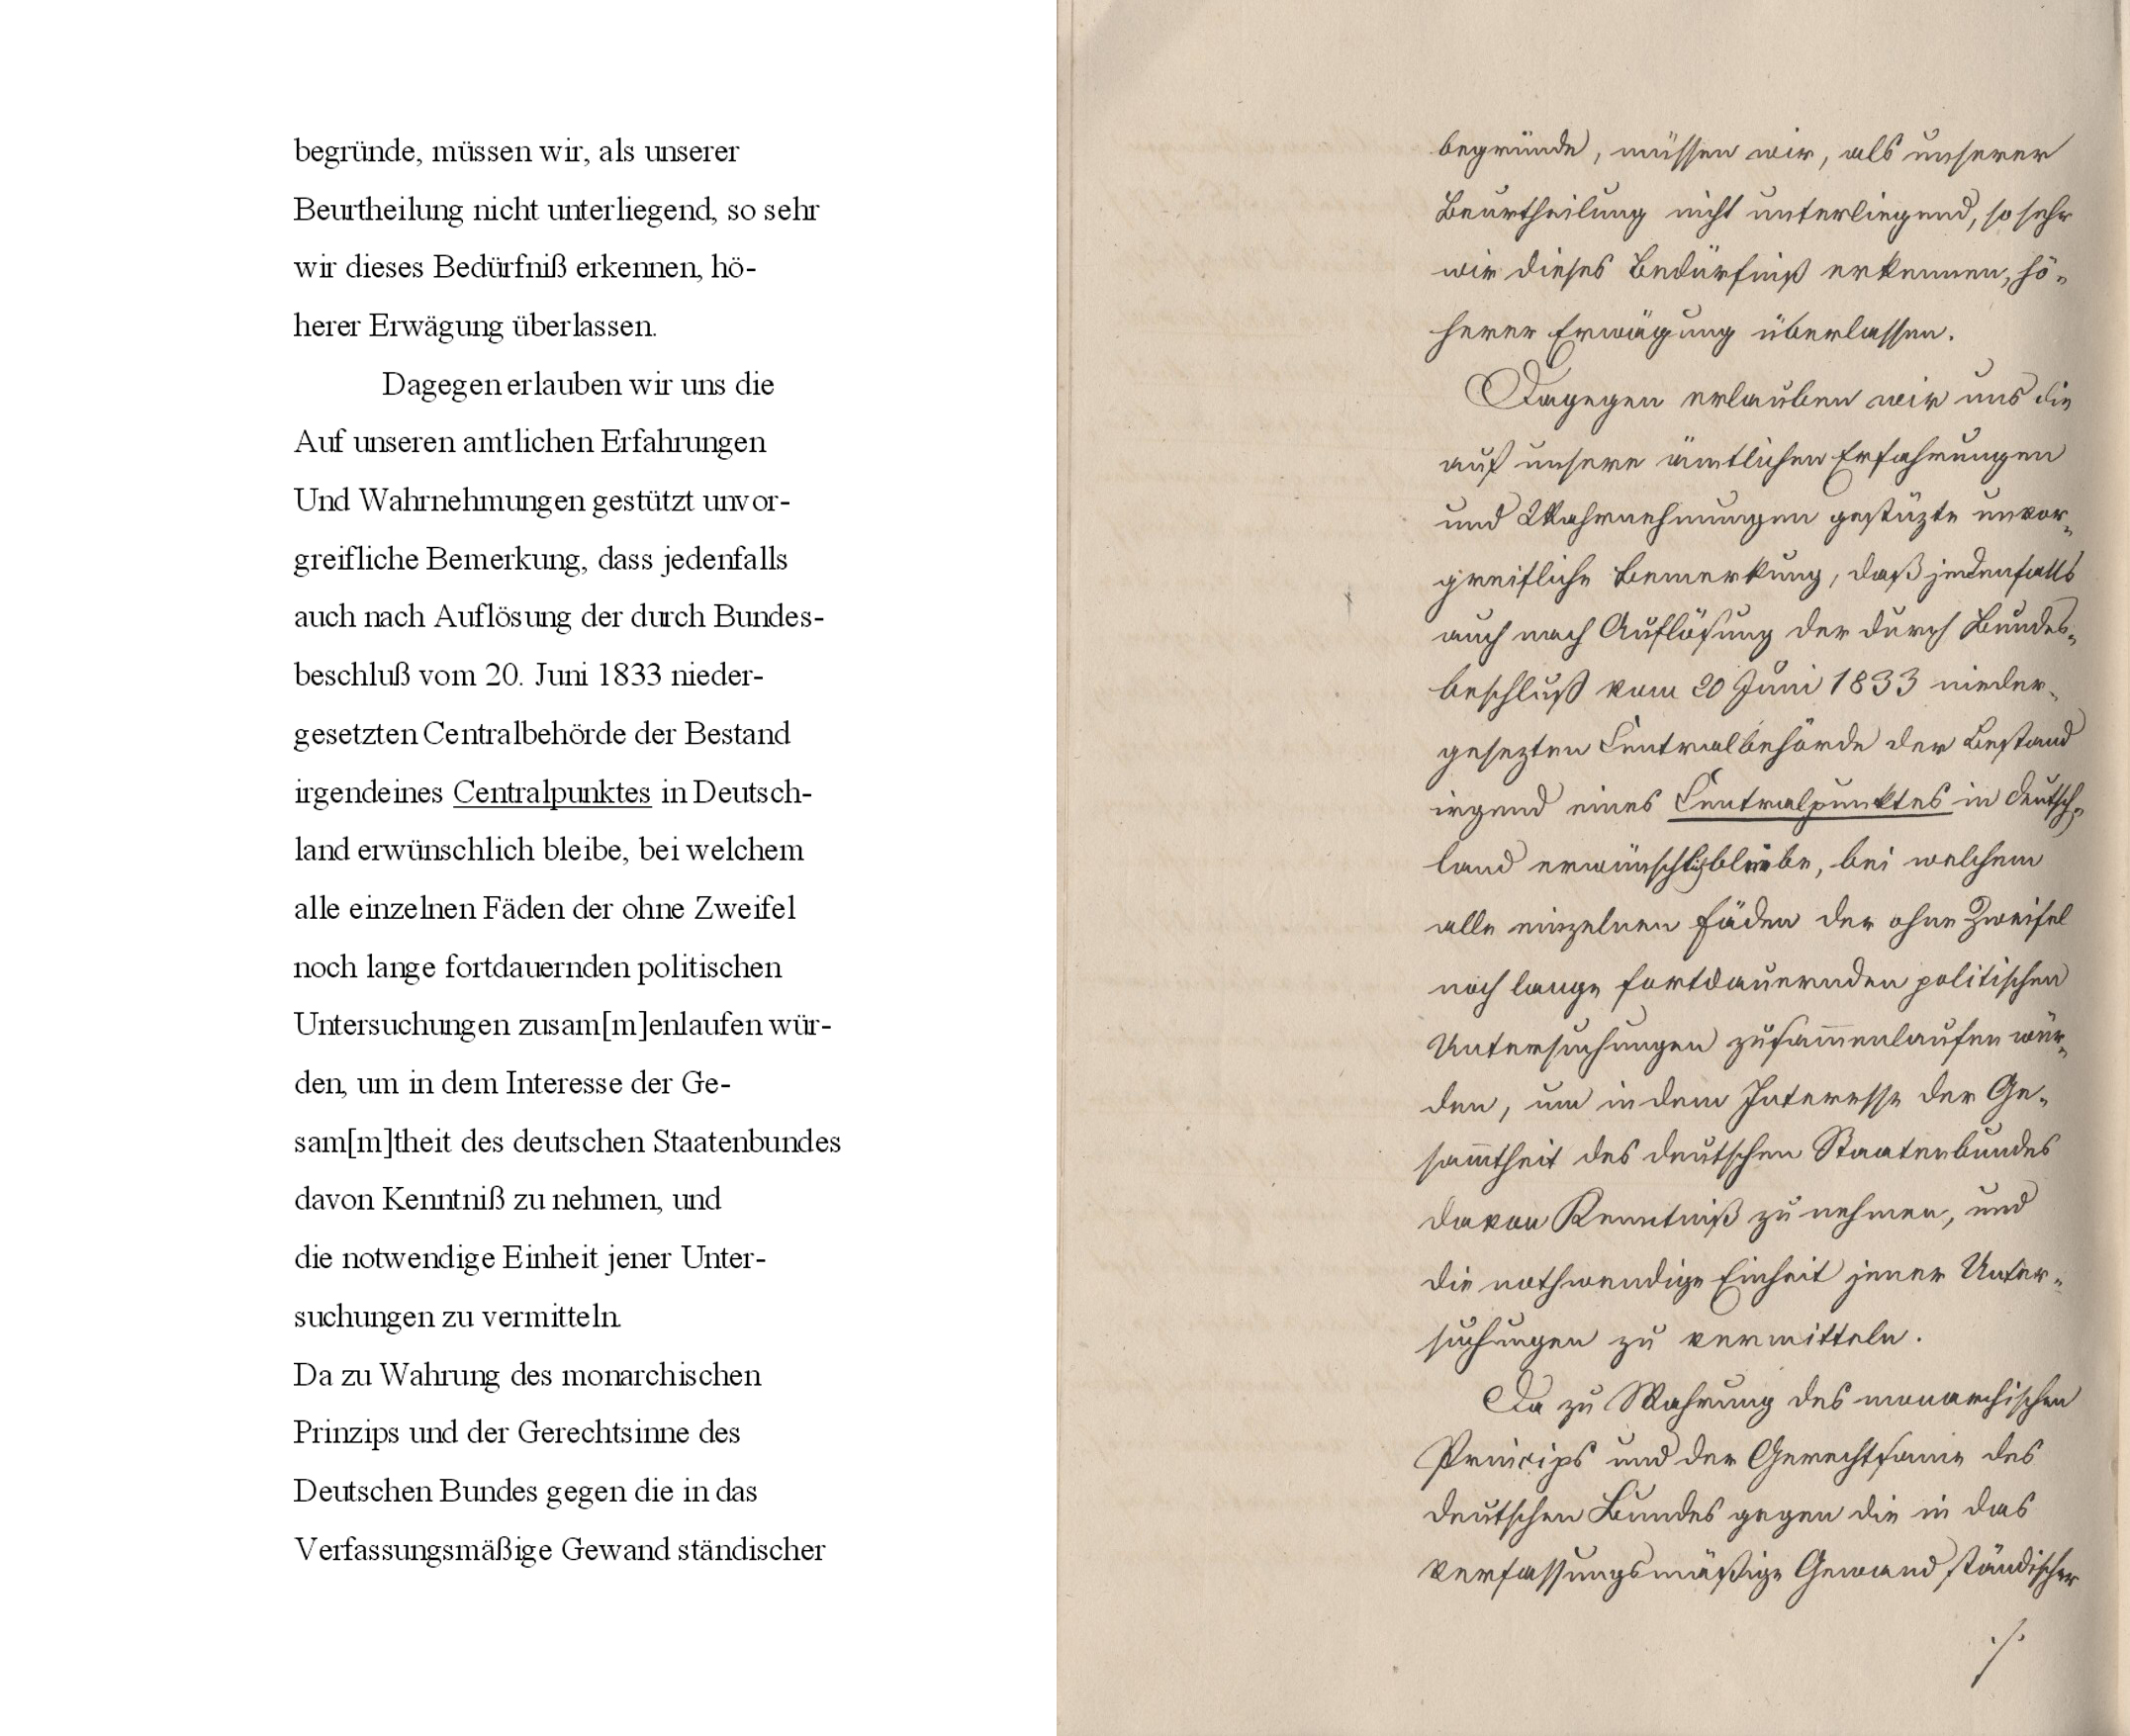 begründe, müssen wir, als unserer
Beurtheilung nicht unterliegend, so sehr
wir dieses Bedürfniß erkennen, hö-
herer Erwägung überlassen.
Dagegen erlauben wir uns die
Auf unseren amtlichen Erfahrungen
Und Wahrnehmungen gestützt unvor-
greifliche Bemerkung, dass jedenfalls
auch nach Auflösung der durch Bundes-
beschluß vom 20. Juni 1833 nieder-
gesetzten Centralbehörde der Bestand
irgendeines Centralpunktes in Deutsch-
land erwünschlich bleibe, bei welchem
alle einzelnen Fäden der ohne Zweifel
noch lange fortdauernden politischen
Untersuchungen zusam[m]enlaufen wür-
den, um in dem Interesse der Ge-
sam[m]theit des deutschen Staatenbundes
davon Kenntniß zu nehmen, und
die notwendige Einheit jener Unter-
suchungen zu vermitteln.
Da zu Wahrung des monarchischen
Prinzips und der Gerechtsinne des
Deutschen Bundes gegen die in das
Verfassungsmäßige Gewand ständischer
begründe, müssen wir, als unserer
Beurtheilung nicht unterliegend, so sehr
wir dieses Bedürfniß erkennen, hö-
herer Erwägung überlassen.
Dagegen erlauben wir uns die
auf unsere ämtlichen Erfahrungen
und Wahrnehmungen gestüzte unvor-
greifliche Bemerkung, daß jedenfalls
auch nach Auflösung der durch Bundes-
beschluß vom 20 Juni 1833 nieder-
gesezten Centralbehörde der Bestand
irgend eines Centralpunktes in Deutsch-
land erwünschlich bleibe, bei welchem
alle einzelnen Fäden der ohne Zweifel
noch lange fortdauernden politischen
Untersuchungen zusam̅enlaufen wür-
den, um in dem Interesse der Ge-
sam̅theit des deutschen Staatenbundes
davon Kenntniß zu nehmen, und
die nothwendige Einheit jener Unter-
suchungen zu vermitteln.
Da zu Wahrung des monarchischen
Princips und der Gerechtsame des
deutschen Bundes gegen die in das
verfassungsmäßige Gewand ständischer
./.